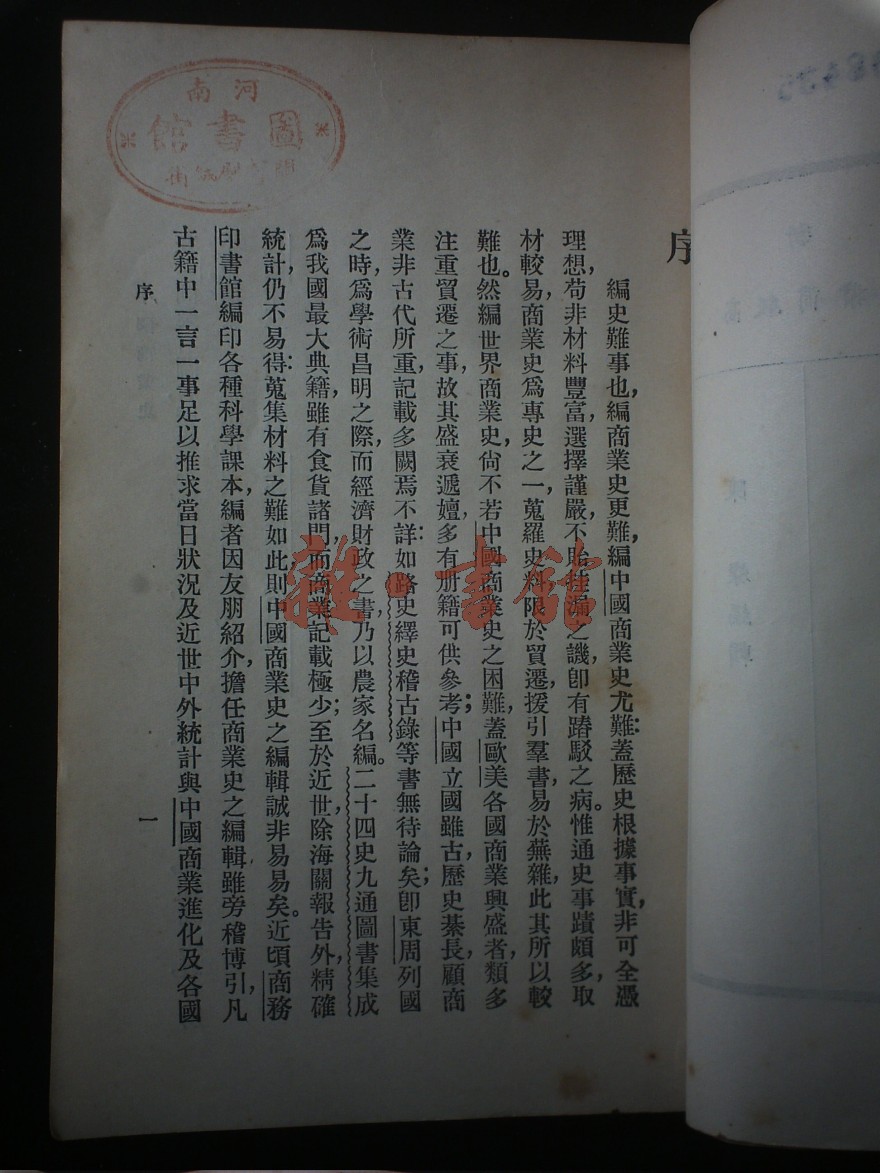 河南
圖書館
序
編史難事也,編商業史更難,編中國商業史尤難:蓋歷史根據事實,非可全憑
理想,苟非材料豐富,選擇謹嚴,不貽挂漏之譏,卽有踳駁之病。惟通史事蹟頗多,取
材較易,商業史爲專史之一,蒐羅史料限於貿遷,援引羣書,易於蕪雜,此其所以較
難也。然編世界商業史,尙不若中國商業史之困難,蓋歐美各國商業興盛者,類多
注重貿遷之事,故其盛衰遞嬗,多有册籍可供參考;中國立國雖古,歷史綦長,顧商
業非古代所重,記載多闕焉不詳:如路史繹史稽古錄等書無待論矣;卽東周列國
之時,爲學術昌明之際,而經濟財政之書,乃以農家名編。二十四史九通圖書集成
爲我國最大典籍,雖有食貨諸門,而商業記載極少;至於近世,除海關報告外,精確
統計,仍不易得:蒐集材料之難如此,則中國商業史之編輯誠非易易矣。近頃商務
印書館編印各種科學課本,編者因友朋紹介,擔任商業史之編輯,雖旁稽博引,凡
古籍中一言一事足以推求當日狀況及近世中外統計與中國商業進化及各國
序
一
雜·書館